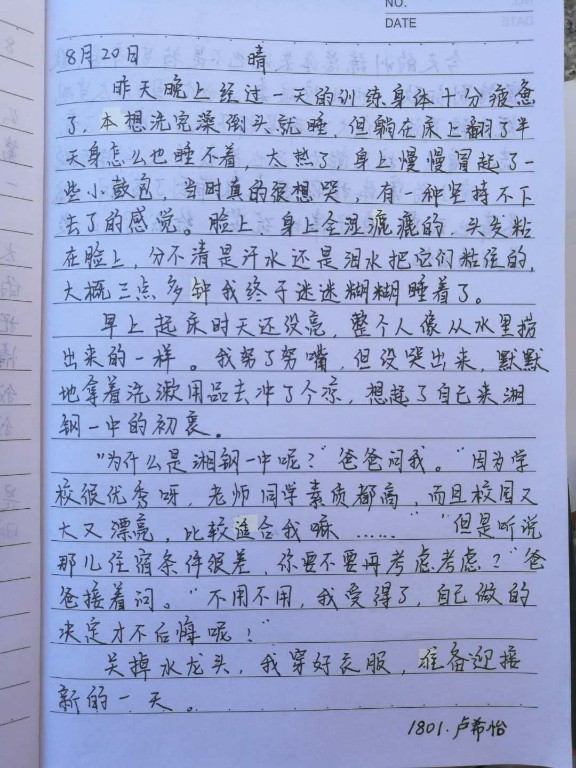 NO.
DATE
8月20日 晴
昨天晚上经过一天的训练身体十分疲惫
了,本想洗完澡倒头就睡,但躺在床上翻了半
天身怎么也睡不着,太热了,身上慢慢冒起了一
些小鼓包,当时真的很想哭,有一种坚持不下
去了的感觉。脸上、身上全湿漉漉的,头发粘
在脸上,分不清是汗水还是泪水把它们粘住的,
大概三点多钟我终于迷迷糊糊睡着了。
早上起床时天还没亮,整个人像从水里捞
出来的一样。我努了努嘴,但没哭出来,默默
地拿着洗漱用品去冲了个凉,想起了自己来湘
钢一中的初衷。
“为什么是湘钢一中呢?”爸爸问我。“因为学
校很优秀呀,老师同学素质都高,而且校园又
大又漂亮,比较适合我嘛……”“但是听说
那儿住宿条件很差,你要不要再考虑考虑?”爸
爸接着问。“不用不用,我受得了,自己做的
决定才不后悔呢!”
关掉水龙头,我穿好衣服,准备迎接
新的一天。
1801.卢希怡